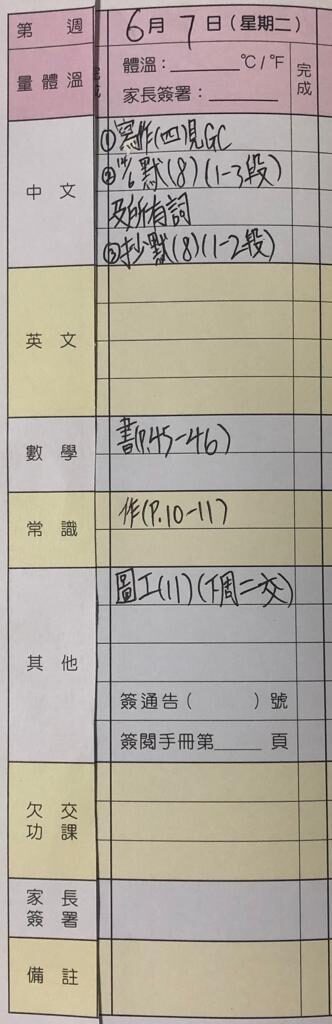 第 週 6月7日(星期二)
量體溫 完成 體溫:______ °C/°F 完成
家長簽署:______
中文 ①寫作(四)見GC
②16/6默(8)(1-3段)
及所有詞
③抄默(8)(1-2段)
英文
數學 書(P.45-46)
常識 作(P.10-11)
其他 圖工(11)(下周二交)
簽通告( )號
簽閱手冊第____頁
欠交
功課
家長
簽署
備註